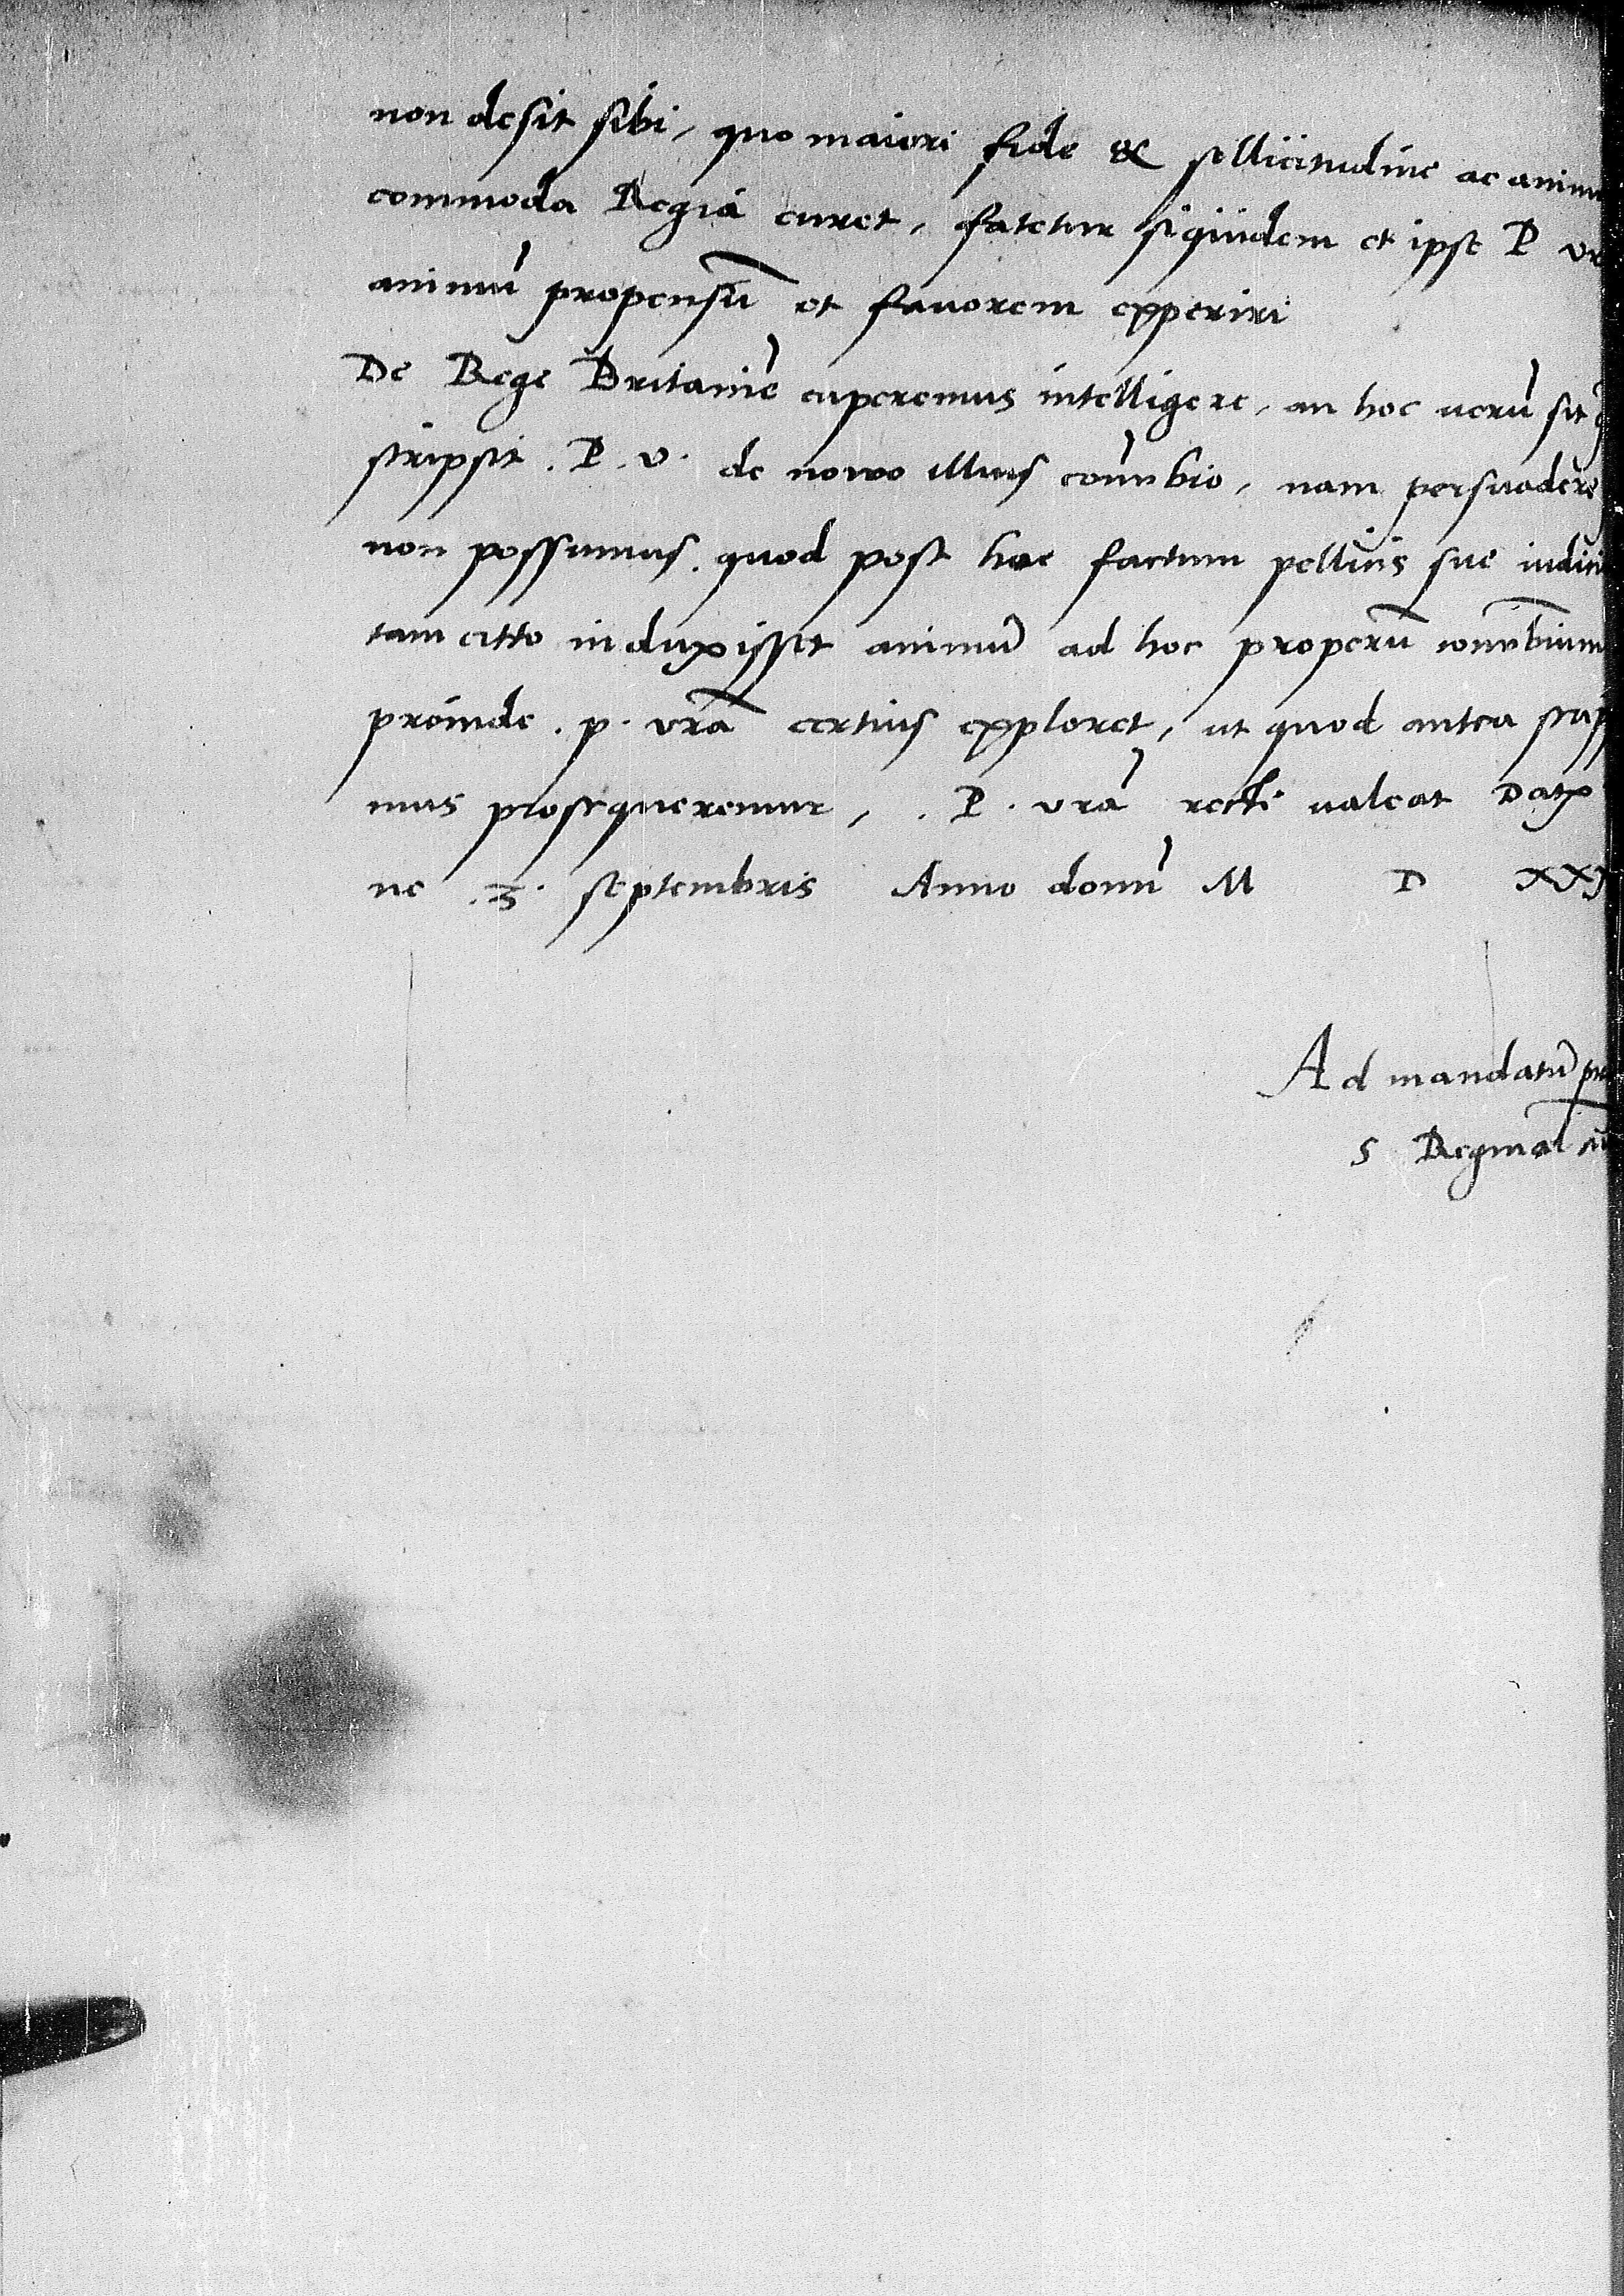 non desit sibi, quo maiori fide & sollicitudine ac anim
commoda Regia curet, fatetur siquidem et ipse P vr
animū propensū et favorem experiri
De Rege Britaniē cuperemus intelligere, an hoc uerū sit q
scripsit. P. v. de nowo illius conūbio, nam persuadere
non possumus. quod post hoc factum pellicis sue iudici
tam citto induxisset animū ad hoc properū conūbium
proinde. p. vrā certius exploret, ut quod antea scrip
mus prosequeremur, . P. vrā recte ualeat Datx
ne .3. septembris Anno domī M D XXX
Ad mandatū pr
S Reginal